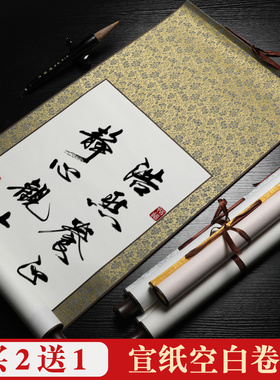 浩然養正
靜心觀
买2送1
宣纸空白卷